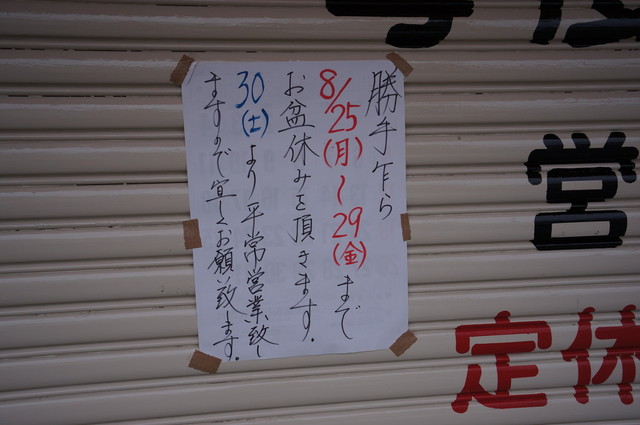 勝手乍ら
8/25(月)~29(金)まで
お盆休みを頂きます.
30(土)より平常営業致し
ますので宜しくお願致します.
営
定休